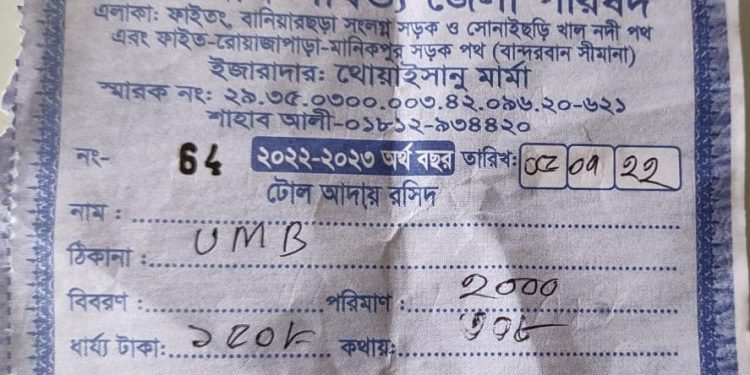 জেলা পরিষদ
এলাকাঃ ফাইতং, বানিয়ারছড়া সংলগ্ন সড়ক ও সোনাইছড়ি খাল নদী পথ
এবং ফাইত-রোয়াজাপাড়া-মানিকপুর সড়ক পথ (বান্দরবান সীমানা)
ইজারাদারঃ থোয়াইসানু মার্মা
স্মারক নংঃ ২৯.৩৫.০৩০০.০০৩.৪২.০৯৬.২০-৬২১
শাহাব আলী-০১৮১২-৯৩৪৪২০
নং- 64 ২০২২-২০২৩ অর্থ বছর তারিখঃ ০৫ ০৭ ২২
টোল আদায় রসিদ
নাম :
ঠিকানা : UMB
বিবরণ : পরিমাণ : ২০০০
ধার্য্য টাকাঃ কথায়ঃ